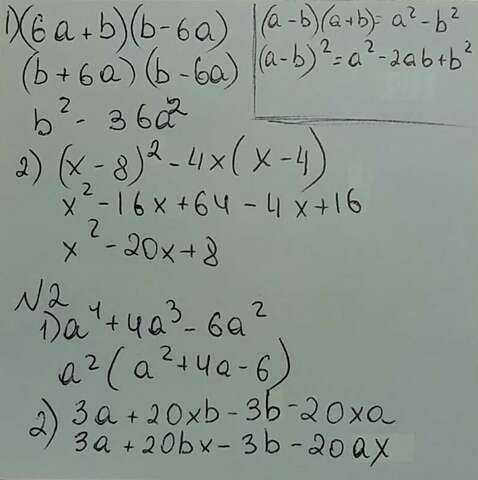 1)(6a+b)(b-6a)
(b+6a)(b-6a)
b²-36a²
(a-b)(a+b)=a²-b²
(a-b)²=a²-2ab+b²
2) (x-8)²-4x(x-4)
x²-16x+64-4x+16
x²-20x+8
N2
1)a⁴+4a³-6a²
a²(a²+4a-6)
2) 3a+20xb-3b-20xa
3a+20bx-3b-20ax